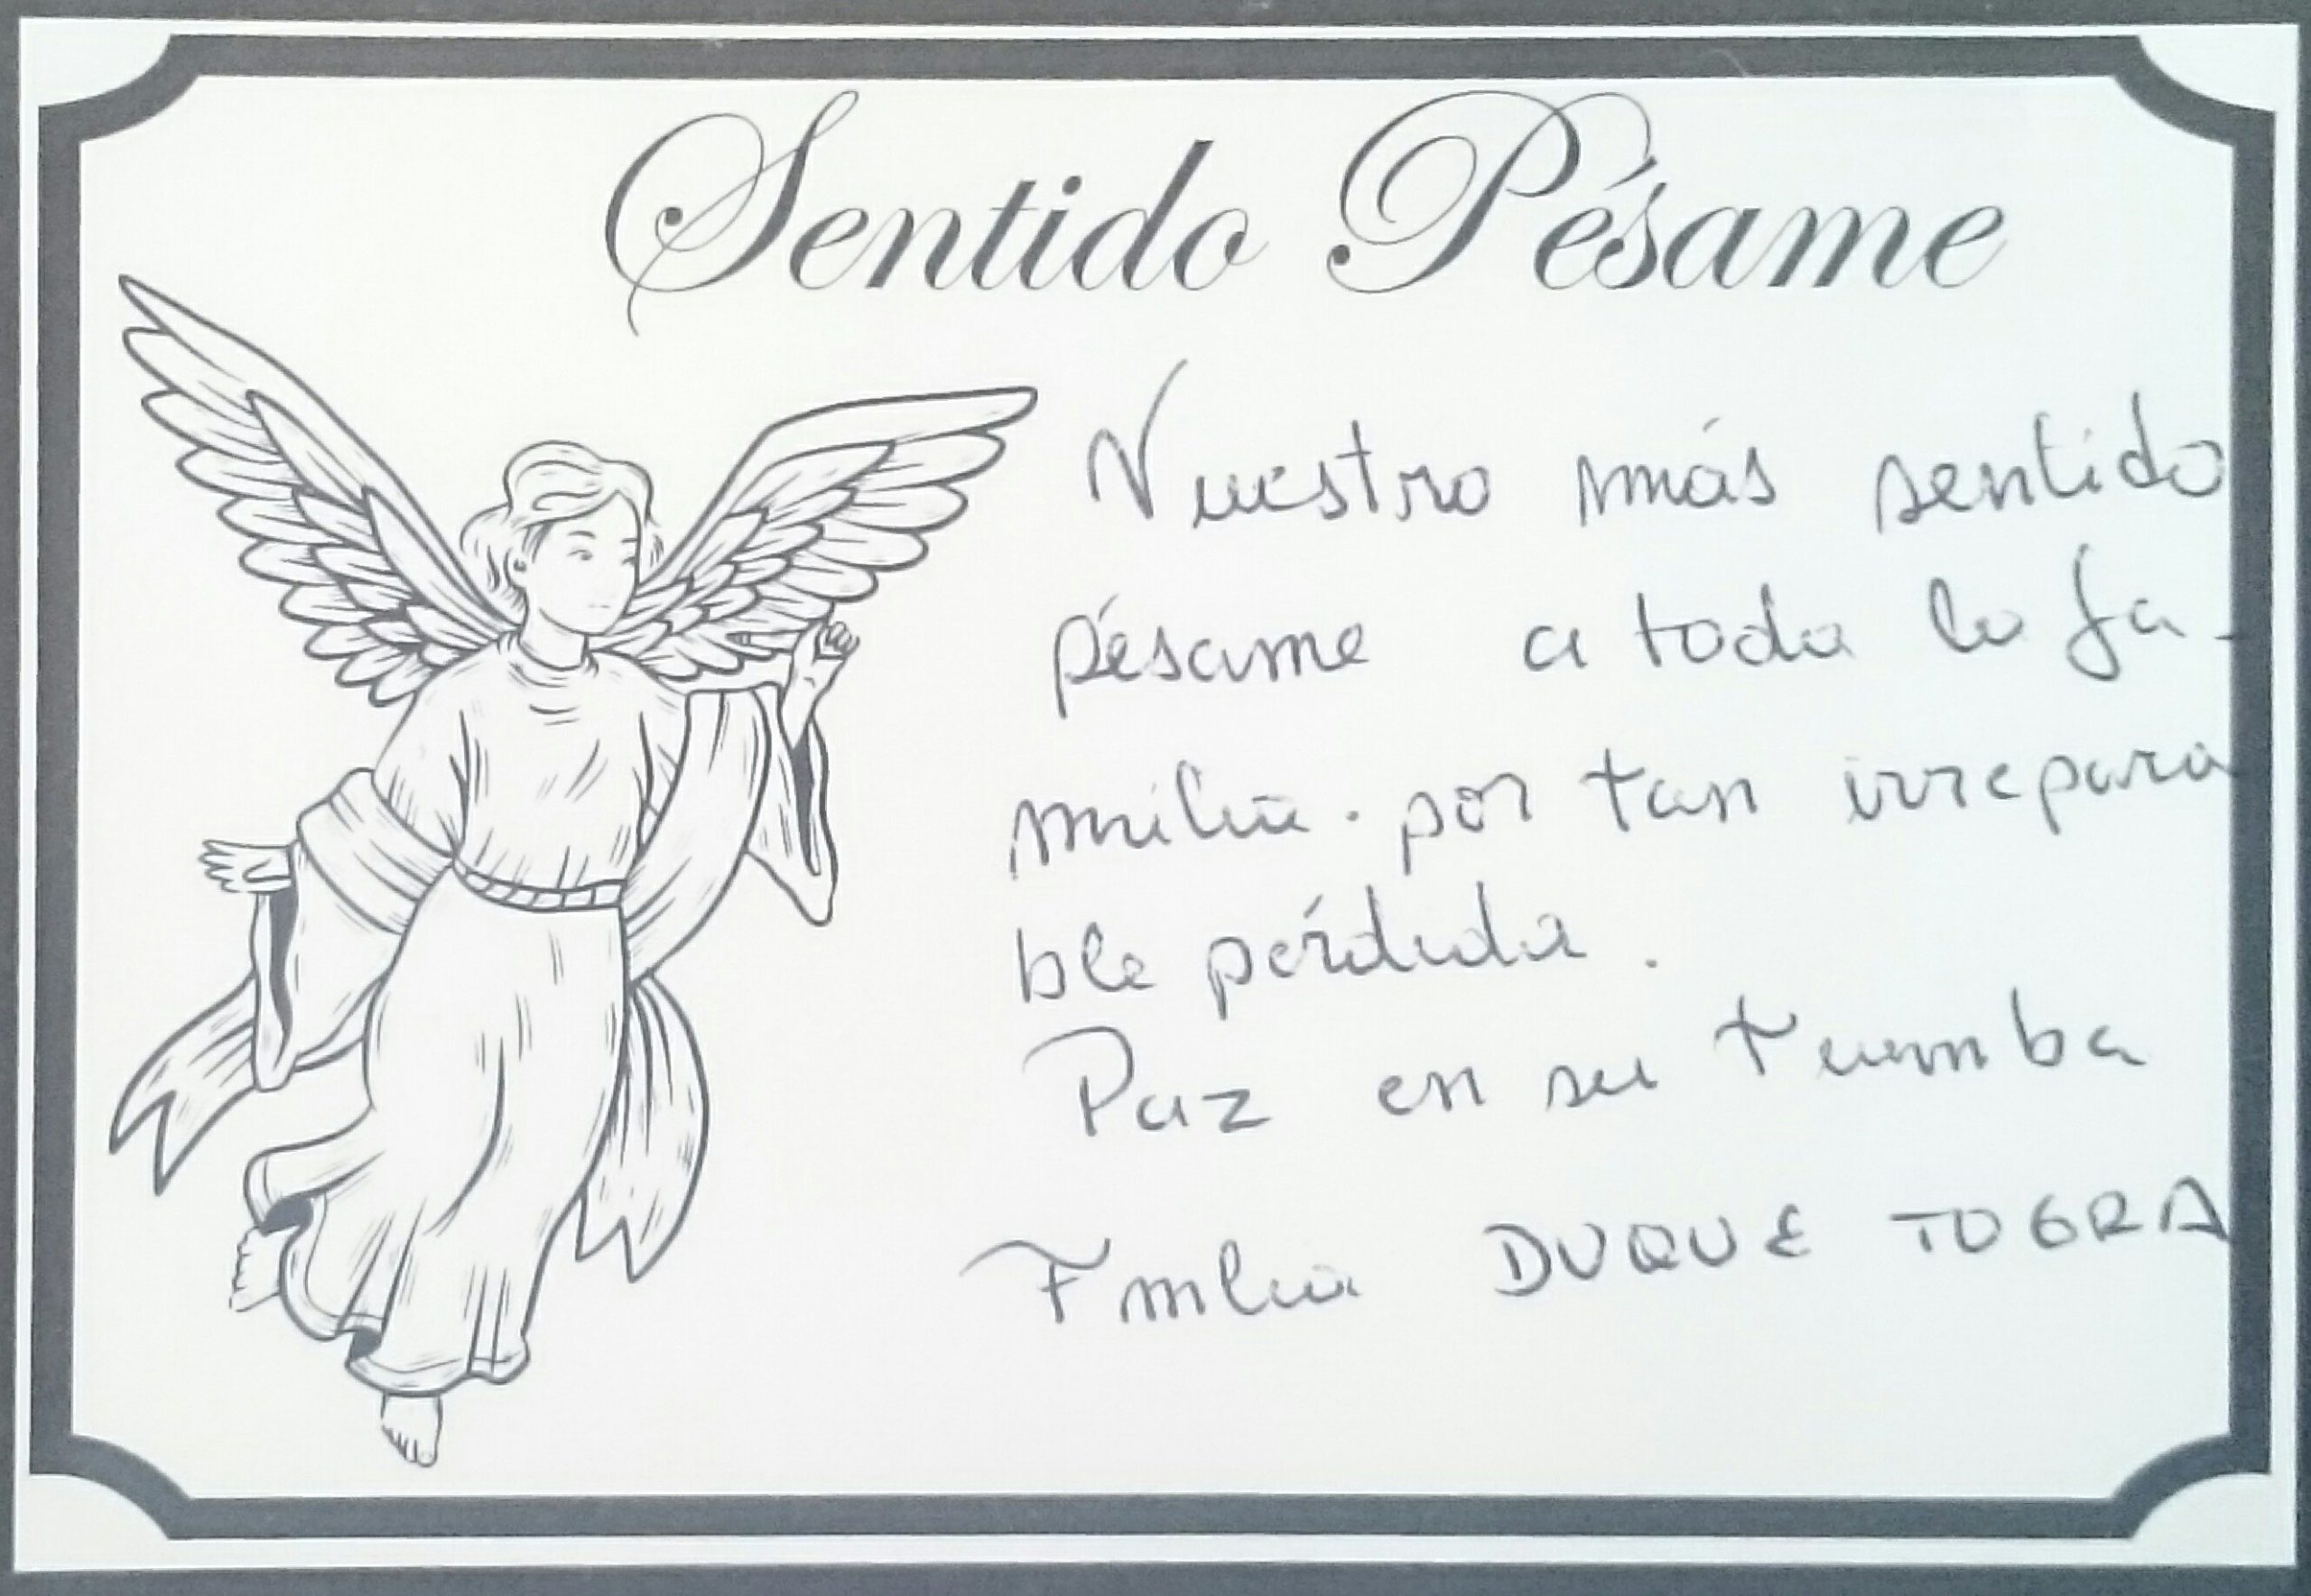 Sentido Pésame
Nuestro más sentido
pésame a toda la fa-
milia. por tan irrepara
ble pérdida.
Paz en su tumba
Fmlia DUQUE TOGRA